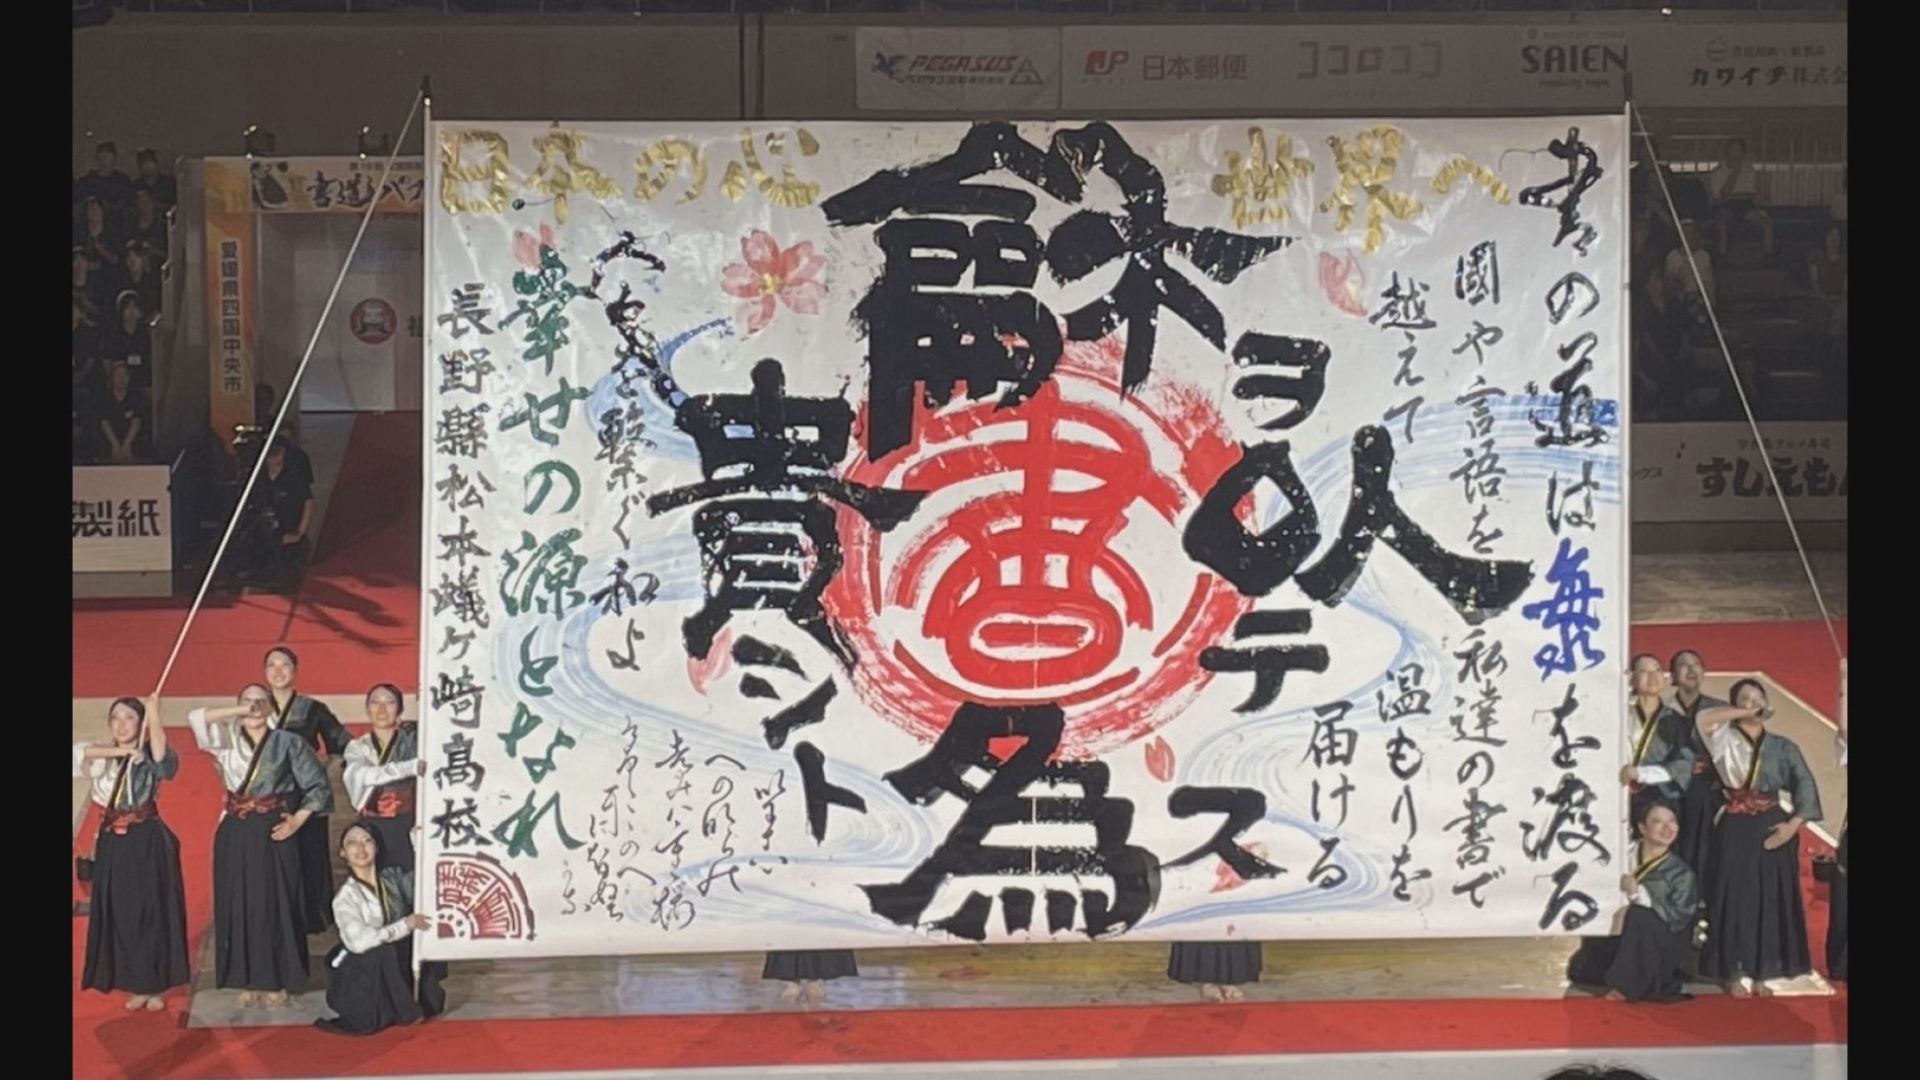 PEGASUS
JP 日本郵便
ココロココ
SAIEN
カワイチ株式会
書道パフ
愛媛県四国中央市
製紙
すしえもん
日本の心 世界へ
書の道は海を渡る
國や言語を
越えて
私達の書で
温もりを
届ける
龢ヲ以テ
貴シト
為ス
書
を繋ぐ和よ
幸せの源となれ
長野縣松本蟻ヶ崎高校